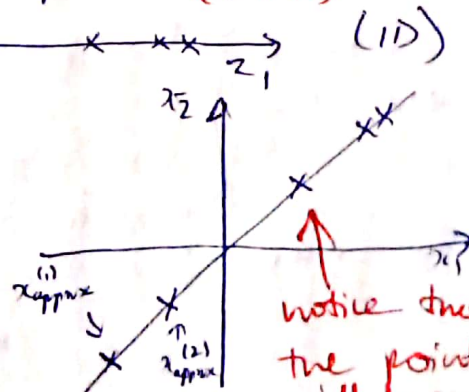 (1D)
z₁
x₂
x₁
x⁽¹⁾approx
x⁽²⁾approx
notice the
the poin